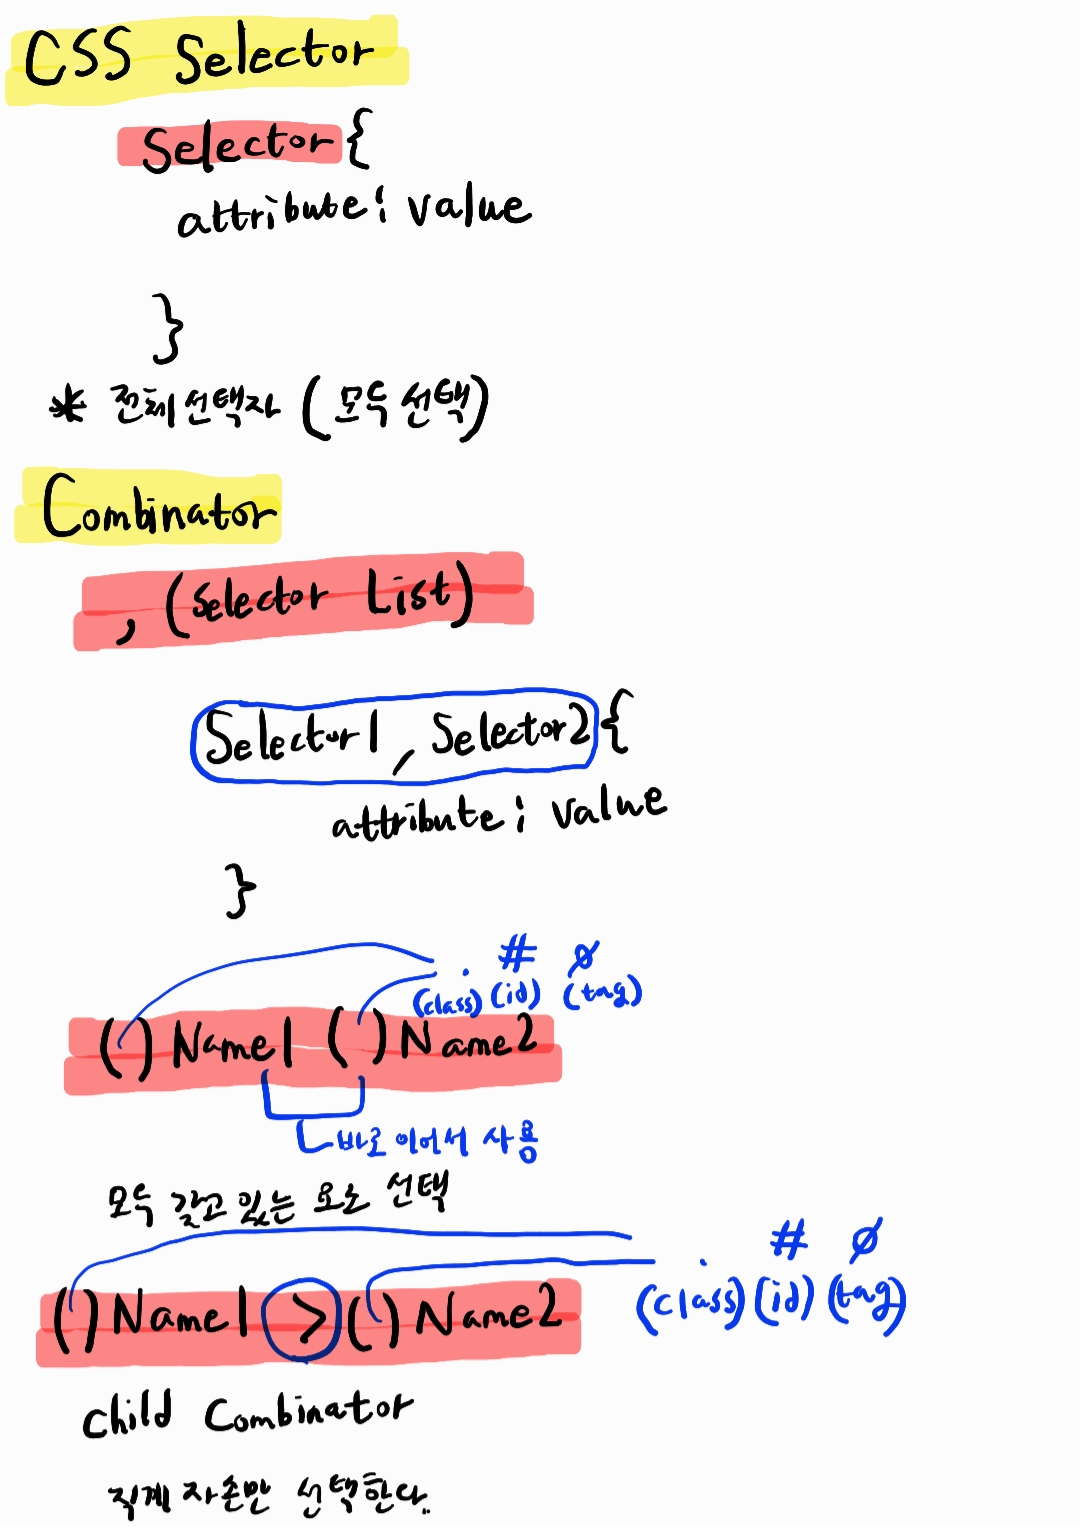 CSS Selector
Selector{
attribute: value
}
* 전체 선택자 (모두 선택)
Combinator
, (Selector List)
Selector1, Selector2{
attribute: value
}
. # ∅
(class) (id) (tag)
( ) Name1 ( ) Name2
바로 이어서 사용
모두 갖고 있는 요소 선택
. # ∅
(class) (id) (tag)
( ) Name1 > ( ) Name2
child Combinator
직계 자손만 선택한다.